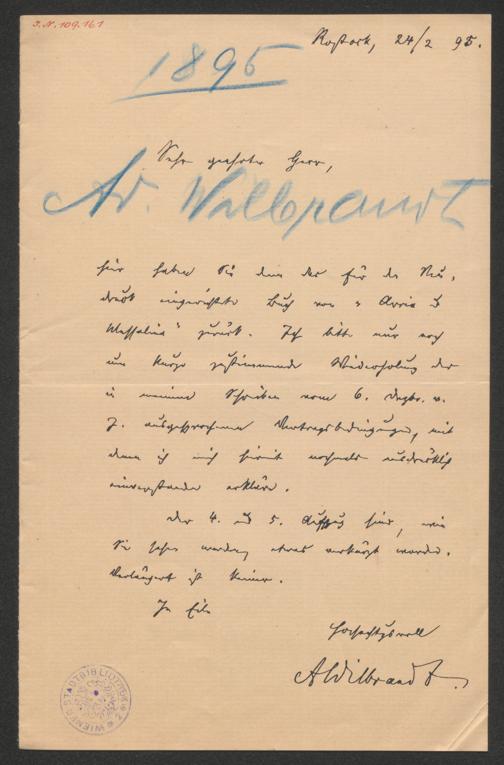 J.N. 109.161
Rostock, 24/2 95.
1895
Sehr geehrter Herr,
Ad. Wilbrandt
hier haben Sie denn das für den Neu-
druck eingerichtete Buch von „Arria u
Messalina“ zurück. Ich bitte nur noch
um kurze zustimmende Wiederholung der
in meinem Schreiben vom 6. Dezbr. v.
J. ausgesprochenen Vertragsbedingungen, mit
denen ich mich hiemit nochmals ausdrücklich
einverstanden erkläre.
Der 4. und 5. Aufzug sind, wie
Sie sehen werden, etwas verkürzt worden.
Verlängert ist keiner.
In Eile
Hochachtungsvoll
AWilbrandt.
WIENER STADTBIBLIOTHEK